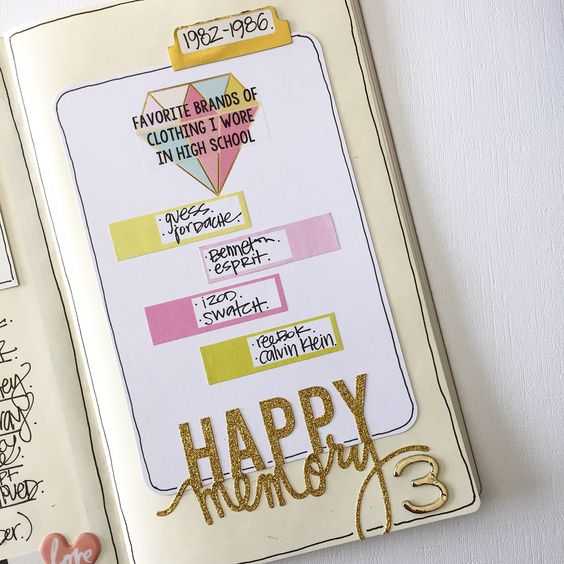 1982-1986
FAVORITE BRANDS OF
CLOTHING I WORE
IN HIGH SCHOOL
· guess
· jordache.
· Benneton
· esprit.
· izod
· swatch.
· reebok.
· calvin klein.
HAPPY
memory
3
oved.
love